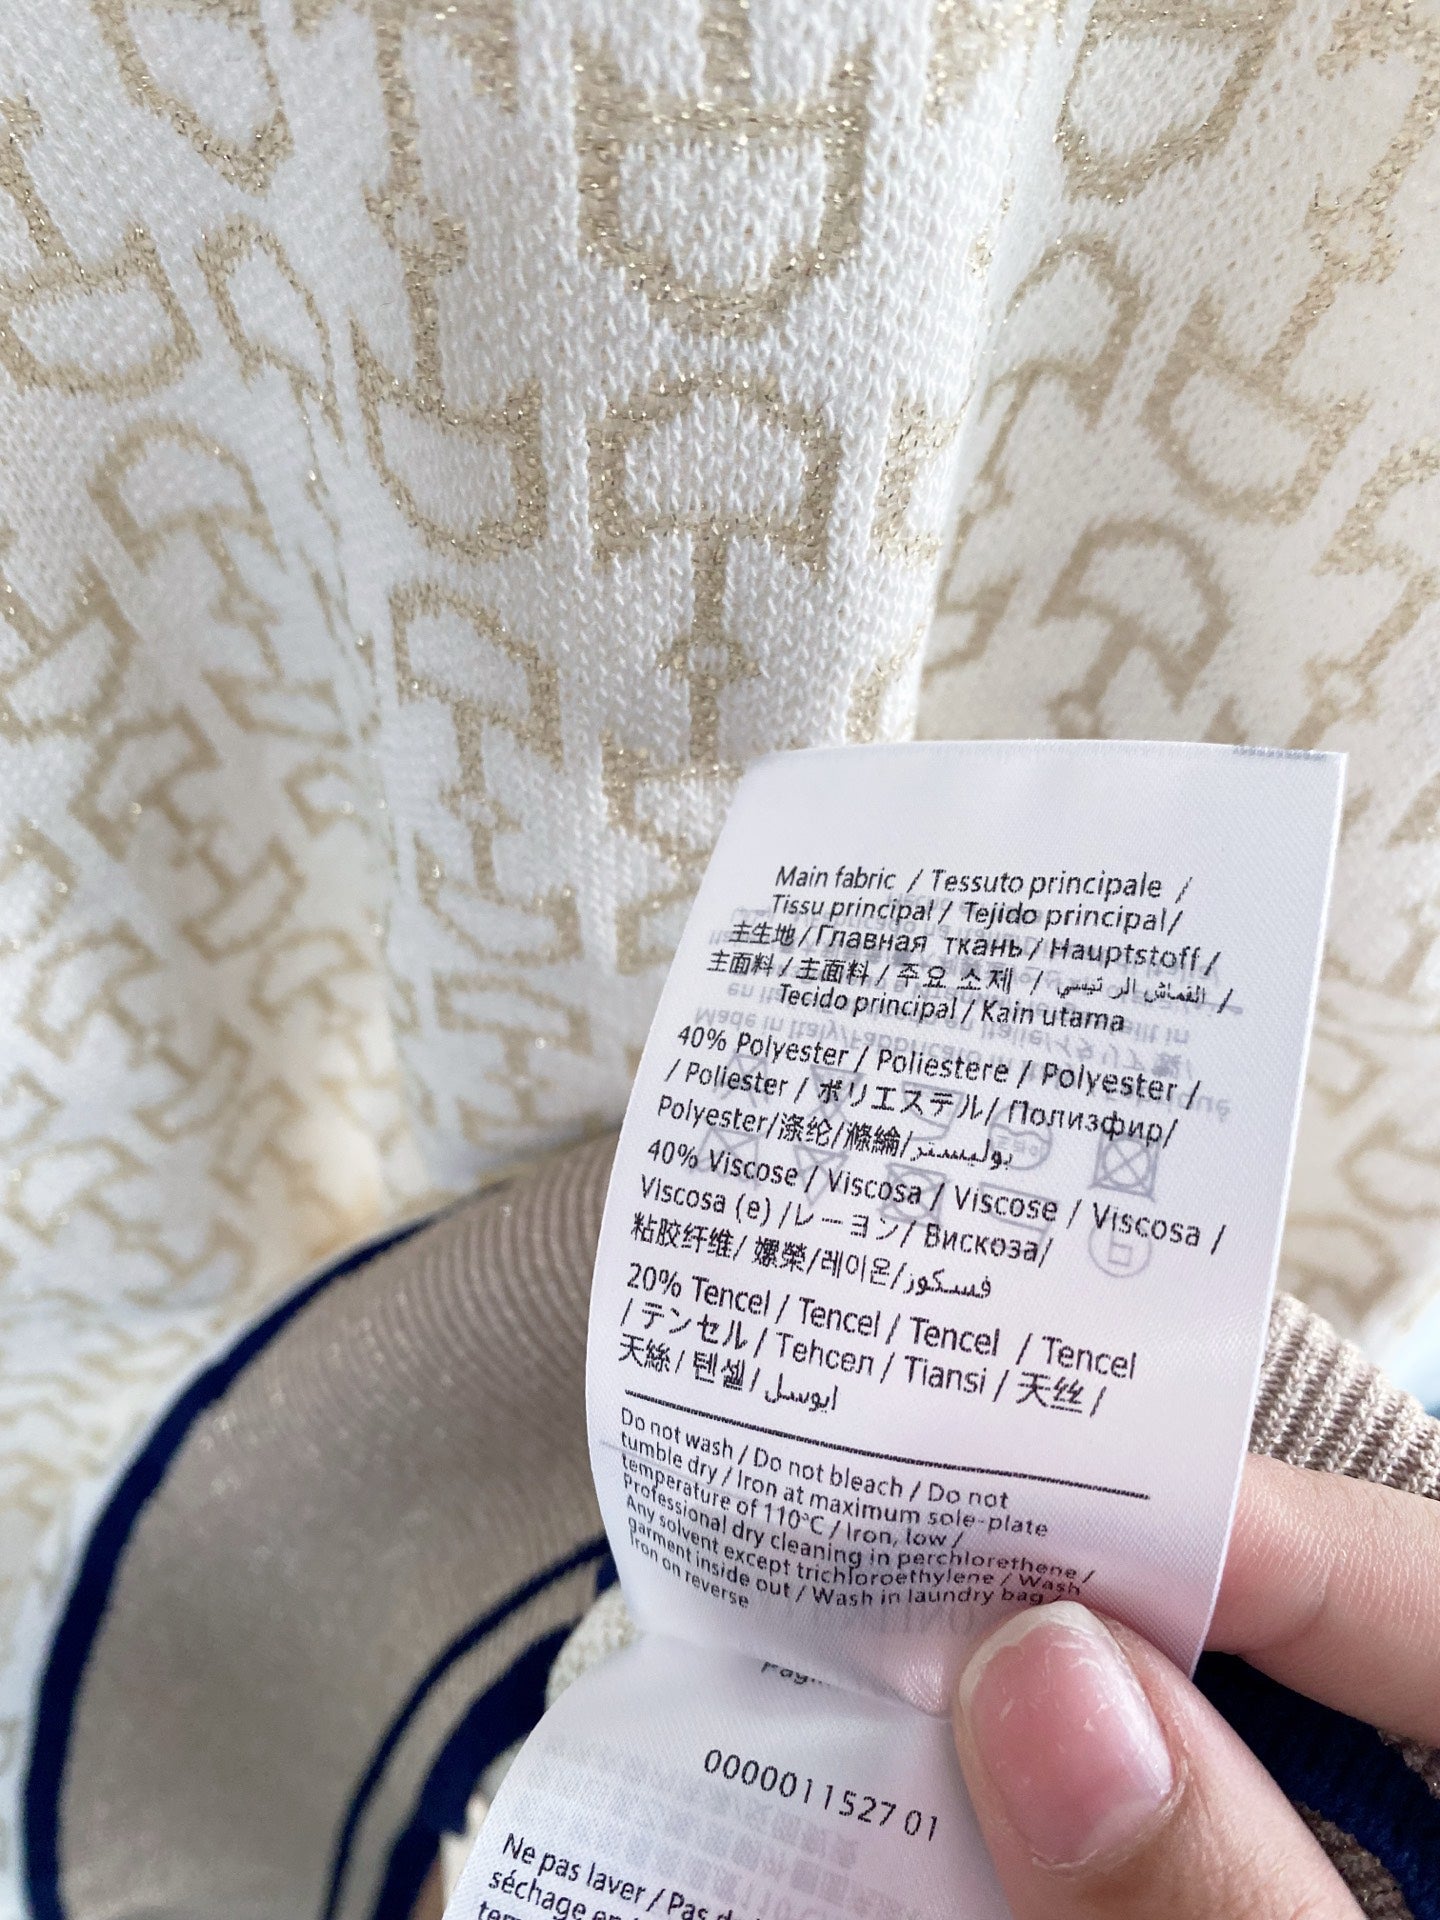 Main fabric / Tessuto principale /
Tissu principal / Tejido principal/
主生地/Главная ткань/ Hauptstoff/
主面料/主面料/주요 소재 / القماش الرئيسي /
Tecido principal / Kain utama
40% Polyester / Poliestere / Polyester /
/ Poliester / ポリエステル/ Полиэфир/
Polyester/涤纶/滌綸/بوليستر
40% Viscose / Viscosa / Viscose / Viscosa /
Viscosa (e) /レーヨン/ Вискоза/
粘胶纤维/ 嫘縈/레이온/فسكوز
20% Tencel / Tencel / Tencel / Tencel
/ テンセル / Тенсел / Tiansi / 天丝 /
天絲/ 텐셀/
Do not wash / Do not bleach / Do not
tumble dry / Iron at maximum sole-plate
temperature of 110°C / Iron, low /
Professional dry cleaning in perchlorethene /
Any solvent except trichloroethylene / Wash
garment inside out / Wash in laundry bag /
Iron on reverse
0000011527 01
Ne pas laver / Pas
séchage en